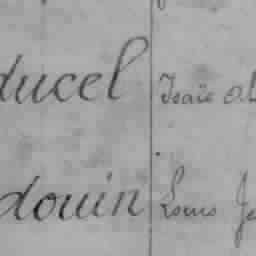 ducel Isaïe
douin Louis